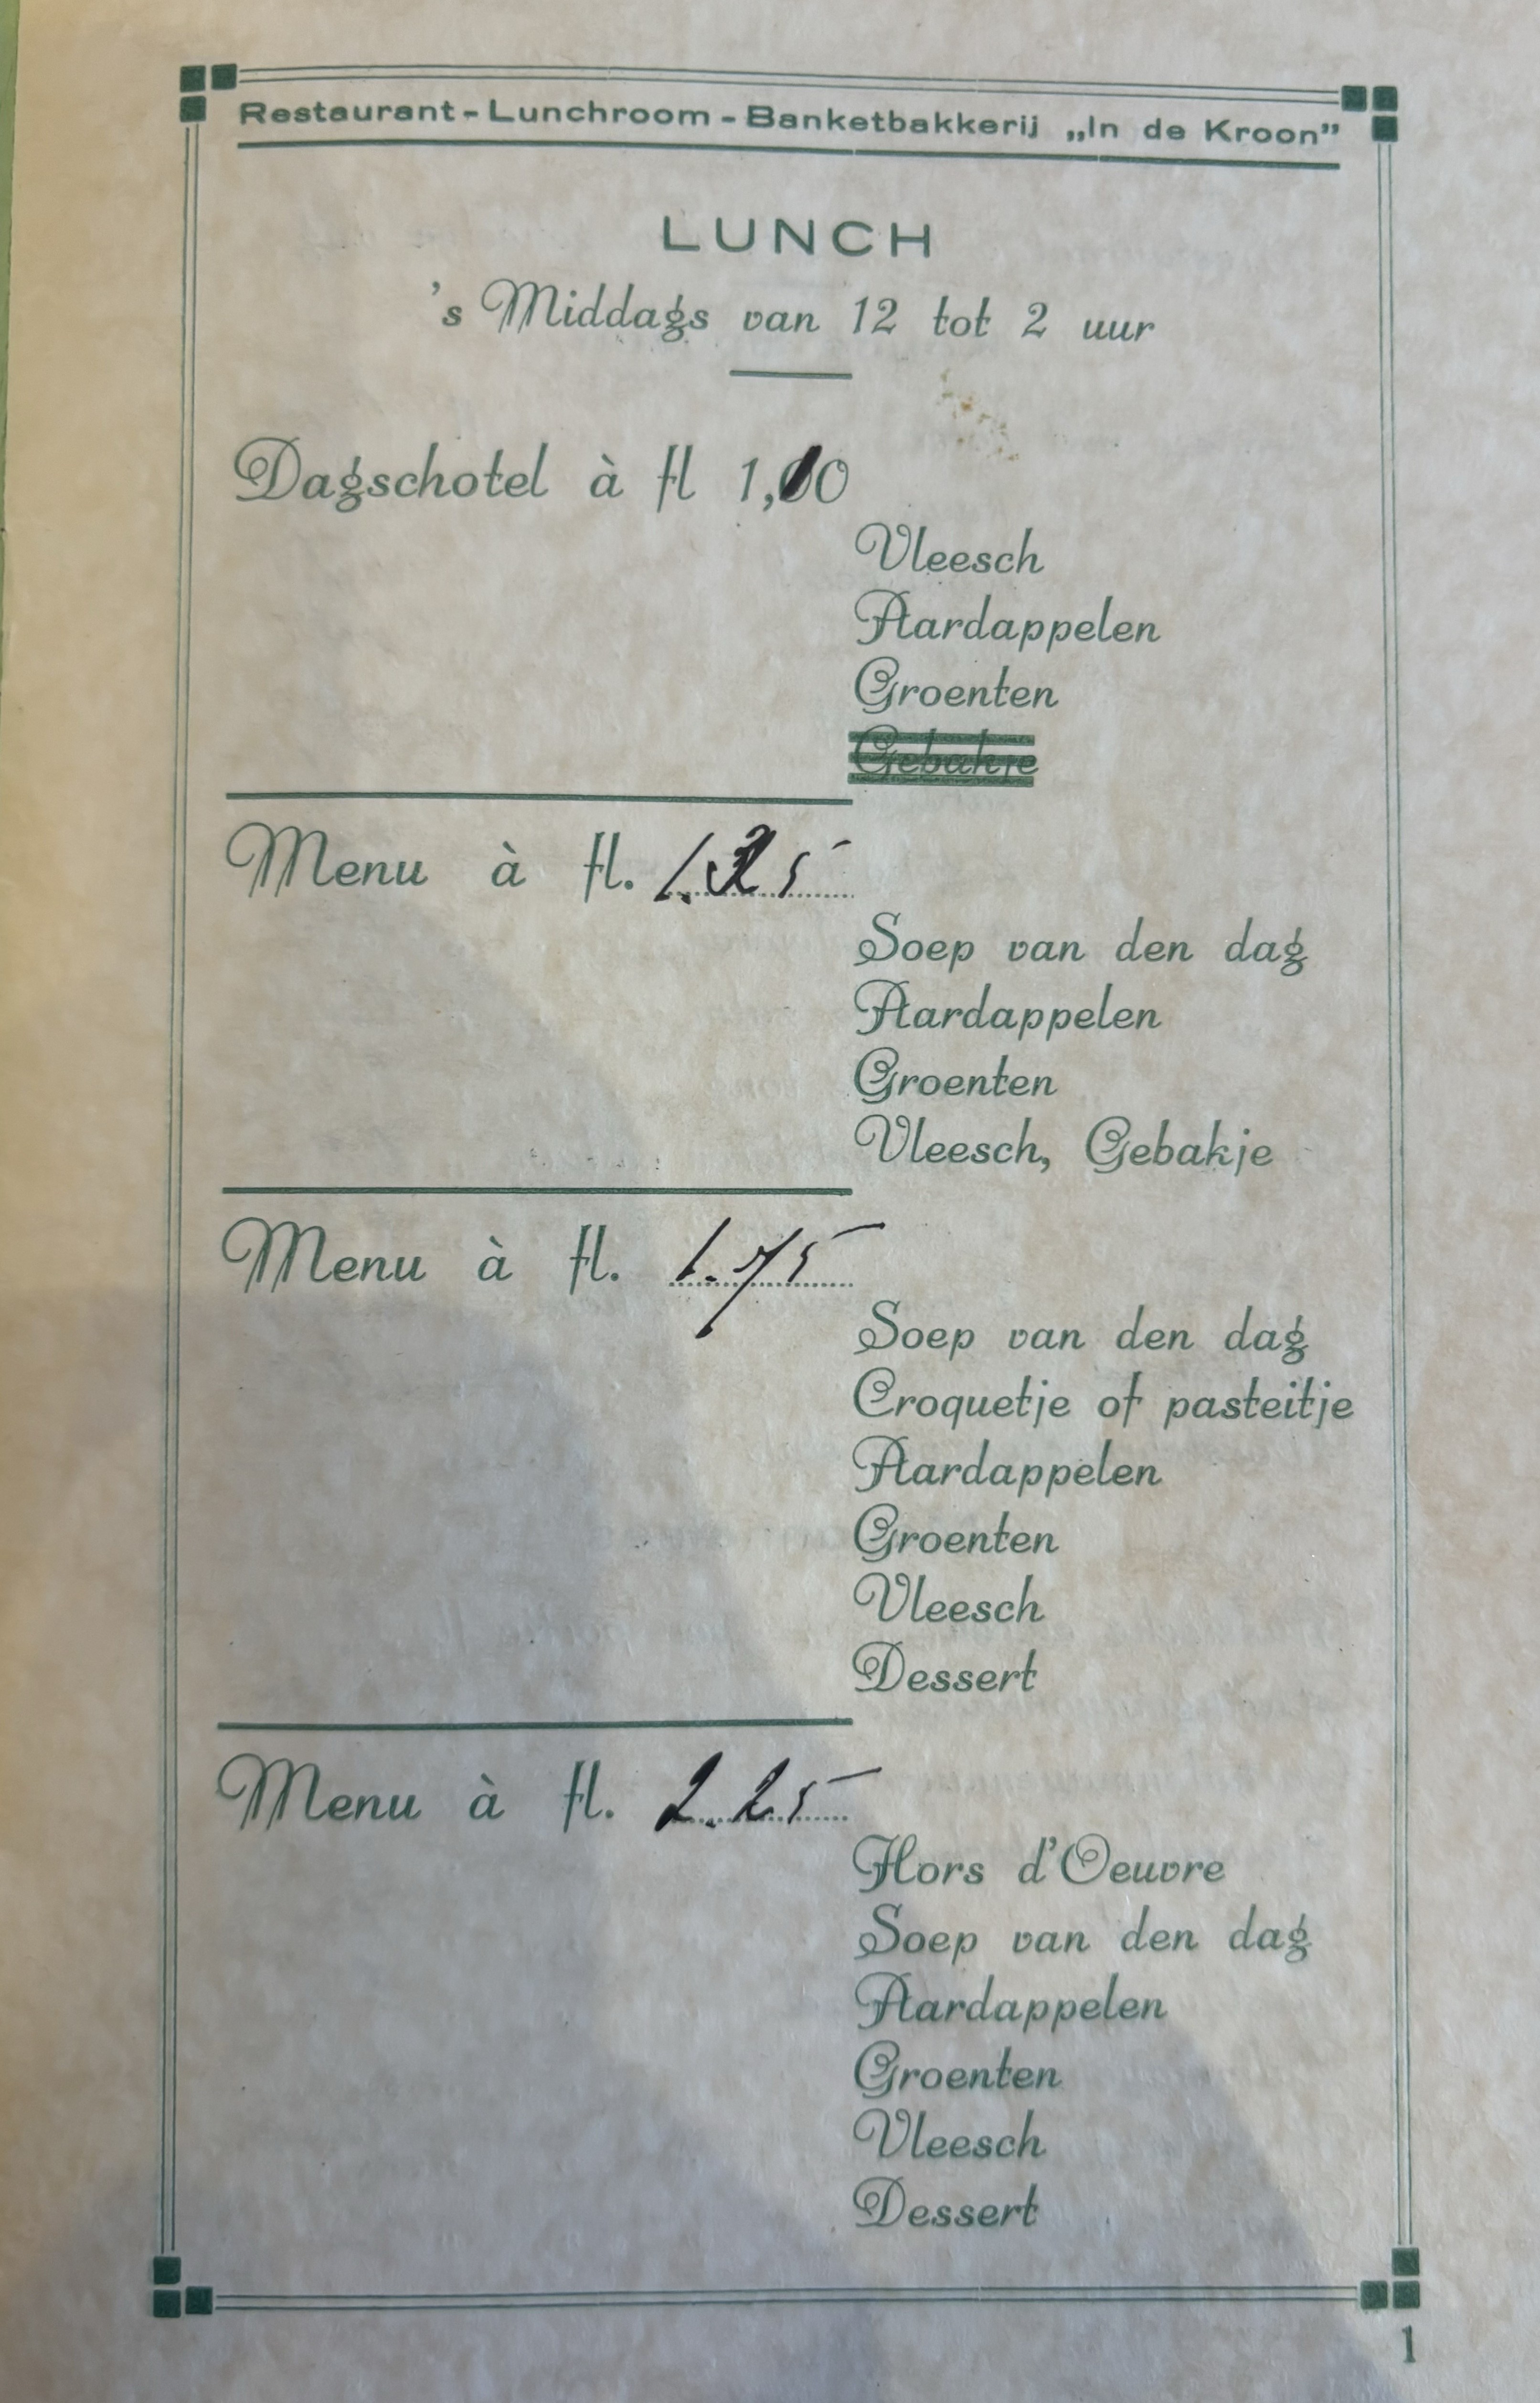 Restaurant - Lunchroom - Banketbakkerij „In de Kroon”
LUNCH
's Middags van 12 tot 2 uur
Dagschotel à fl 1,10
Vleesch
Aardappelen
Groenten
Gebakje
Menu à fl.
Soep van den dag
Aardappelen
Groenten
Vleesch, Gebakje
Menu à fl. 1.75
Soep van den dag
Croquetje of pasteitje
Aardappelen
Groenten
Vleesch
Dessert
Menu à fl. 2.25
Hors d'Oeuvre
Soep van den dag
Aardappelen
Groenten
Vleesch
Dessert
1